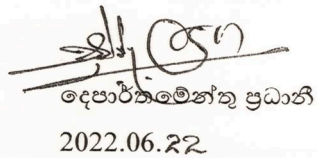 දෙපාර්තමේන්තු ප්‍රධානී
2022.06.22